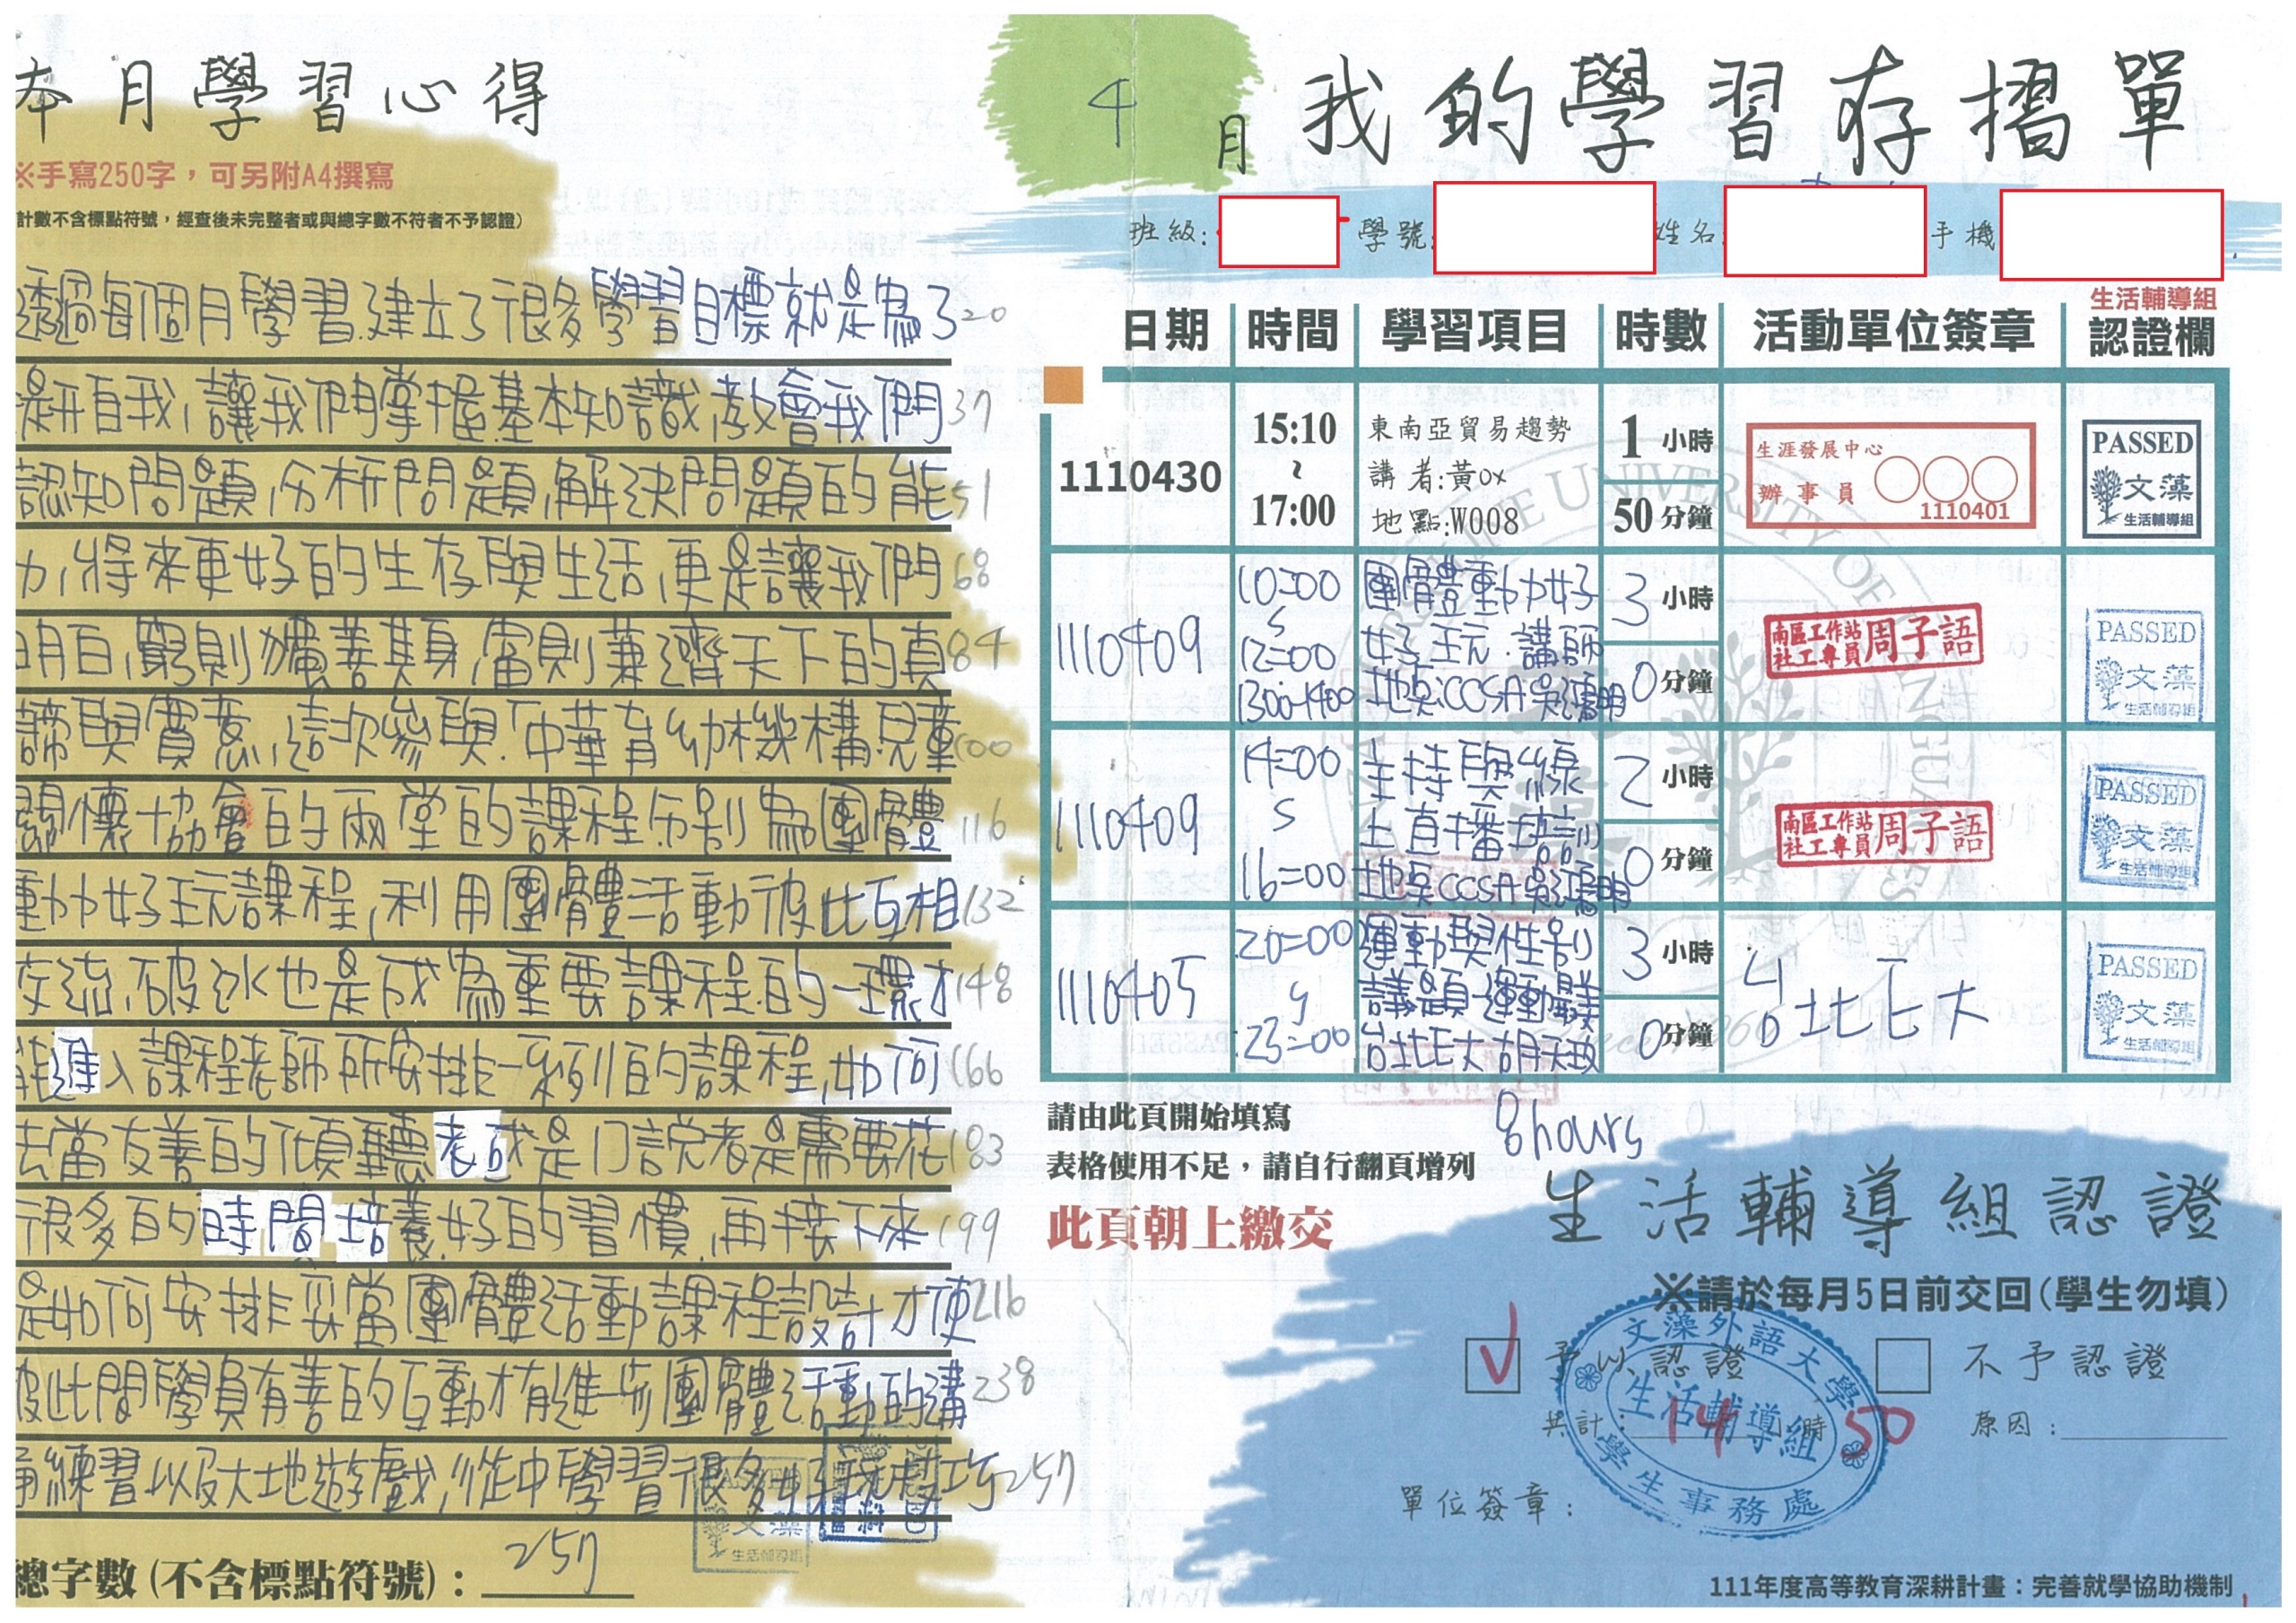 本月學習心得
※手寫250字，可另附A4撰寫
計數不含標點符號，經查後未完整者或與總字數不符者不予認證）
透過每個月學習.建立了很多學習目標就是為了20
提升自我,讓我們掌握基本知識,教會我們37
認知問題,分析問題,解決問題的能51
力,將來更好的生存與生活,更是讓我們68
明白,窮則獨善其身,富則兼濟天下的真84
諦與實意,這次參與「中華育幼機構兒童100
關懷協會的兩堂的課程分別為團體116
動力好好玩課程,利用團體活動彼此互相132
交流,破冰也是成為重要課程的一環才148
能進入課程老師所安排一系列的課程,如何166
去當友善的傾聽者或是 說者是需要花183
很多的時間培養好的習慣,再接下來199
是如何安排妥當團體活動課程設計才使216
彼此間學員有善的互動才有進一步團體活動的溝238
通練習以及大地遊戲,從中學習很多 技巧257
總字數 (不含標點符號)：257
PASSED
文藻
生活輔導組
4月我的學習存摺單
班級: 學號: 姓名: 手機
日期 時間 學習項目 時數 活動單位簽章 生活輔導組認證欄
1110430 15:10~17:00 東南亞貿易趨勢 講者:黃ox 地點:W008 1小時 50分鐘 生涯發展中心 辦事員 1110401 PASSED 文藻 生活輔導組
1110409 10:00 12:00 1300-1400 團體動力好好玩.講師 地點:CCSA 3小時 0分鐘 南區工作站 社工專員 周子語 PASSED 文藻 生活輔導組
1110409 14:00 16:00 主持與線上直播培訓 地點CCSA 2小時 0分鐘 南區工作站 社工專員 周子語 PASSED 文藻 生活輔導組
1110405 20:00 23:00 運動與性別議題-運動 台北 大 3小時 0分鐘 台北 大 PASSED 文藻 生活輔導組
請由此頁開始填寫
8hours
表格使用不足，請自行翻頁增列
此頁朝上繳交
生活輔導組認證
※請於每月5日前交回(學生勿填)
✓ 予以認證 □ 不予認證
共計： 14 時 50 原因：
單位簽章：
文藻外語大學
生活輔導組
學生事務處
111年度高等教育深耕計畫：完善就學協助機制